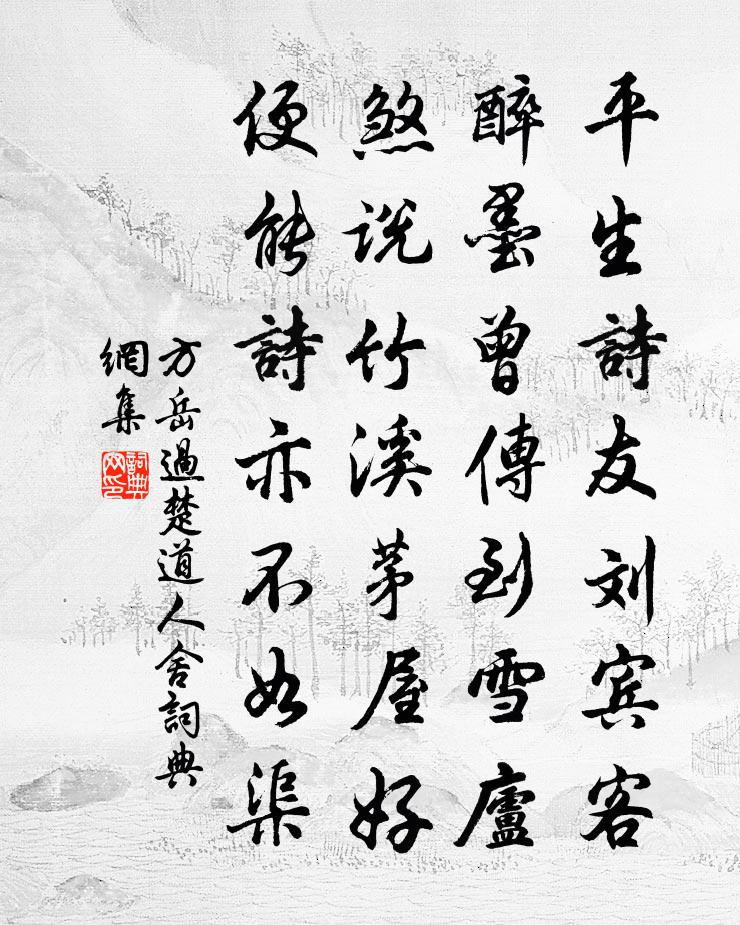 平生詩友刘宾客
醉墨曾傳到雪廬
煞说竹溪茅屋好
便能詩亦不如渠
方岳過楚道人舍詞典
網集
詞典網印